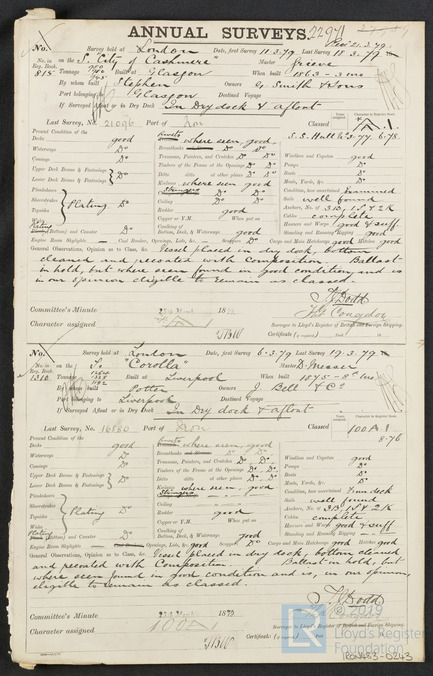 ANNUAL SURVEYS.
No. Survey held at London Date, first Survey 11.3.79 Last Survey 18.3.79
No. in Reg. Book. on the S. "City of Cashmere" Master Grieve
815 Tonnage Built at Glasgow When built 1863 - 3 mo
By whom built Stephen Owners G. Smith & Sons
Port belonging to Glasgow Destined Voyage
If Surveyed Afloat or in Dry Dock In Dry dock & afloat
Last Survey, No. 21096 Port of Classed
Present Condition of the where seen, good S.S. Hull
Decks good Breasthooks Do Windlass and Capstan good
Waterways Do Transoms, Pointers, and Crutches Do Do Pumps Do
Comings Do Timbers of the Frame at the Openings Do Do Boats Do
Upper Deck Beams & Fastenings Do Ditto ditto at other places Do Do Masts, Yards, &c. Do
Lower Deck Beams & Fastenings where seen good Condition, how ascertained Examined
Plansheers Sails well found
Sheerstrakes Plating Do Ceiling Do Anchors, No. of 3B, 1S & 2K
Topsides Rudder good Cables complete
Copper or Y.M. When put on Hawsers and Warps good & suff.
Caulking of Bottom, Deck, & Waterways good Standing and Running Rigging good
Engine Room Skylights Cargo and Main Hatchways good Hatches good
General Observations, Opinion as to Class, &c. Vessel placed in dry dock, bottom
cleaned and recoated with Composition. Ballast
in hold, but where seen found in good condition, and is
in our opinion eligible to remain as classed.
T. Dodd
Surveyor to Lloyd's Register of British and Foreign Shipping.
Committee's Minute 187
Character assigned Certificate
No. Survey held at London Date, first Survey 6.3.79 Last Survey 19.3.79
No. in Reg. Book. on the S. "Corolla" Master D. Messer
1310 Tonnage Built at Liverpool When built
By whom built Potter Owners J. Bell & Co
Port belonging to Liverpool Destined Voyage
If Surveyed Afloat or in Dry Dock In Dry dock & afloat
Last Survey, No. 16880 Port of Iron Classed 100 A 1
Present Condition of the where seen, good 8-76
Decks good Breasthooks Windlass and Capstan good
Waterways Do Transoms, Pointers, and Crutches Do Do Pumps Do
Comings Do Timbers of the Frame at the Openings Do Do Boats Do
Upper Deck Beams & Fastenings Do Ditto ditto at other places Do Do Masts, Yards, &c. Do
Lower Deck Beams & Fastenings where seen, good Condition, how ascertained From deck
Plansheers Sails well found
Sheerstrakes Plating Do Ceiling Anchors, No. of 3B, 1S & 2K
Topsides Rudder good Cables complete
Copper or Y.M. When put on Hawsers and Warps good & suff
Caulking of Bottom, Deck, & Waterways good Standing and Running Rigging
Engine Room Skylights Cargo and Main Hatchways good Hatches good
General Observations, Opinion as to Class, &c. Vessel placed in dry dock, bottom cleaned
and recoated with Composition. Ballast in hold, but
where seen found in good condition and is, in our opinion,
eligible to remain as classed.
T. Dodd
Surveyor to Lloyd's Register of British and Foreign Shipping.
Committee's Minute 1879
Character assigned 100A1 Certificate
LR © 2019
Lloyd's Register
Foundation
IRON433-0243